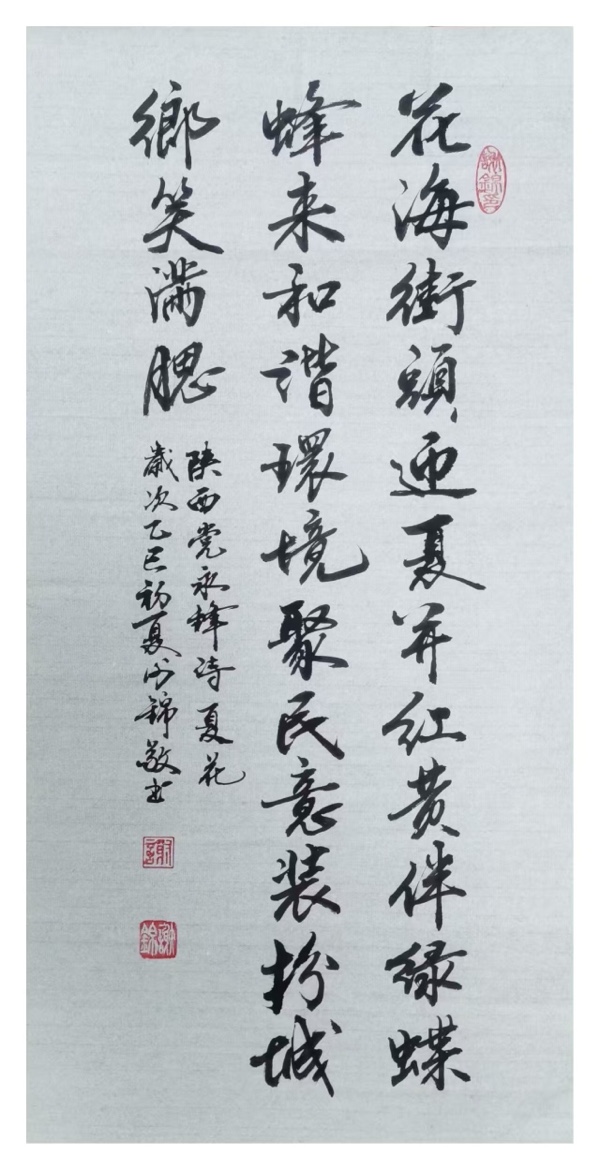 花海街頭迎夏开红黄伴绿蝶
蜂来和谐環境聚民意装扮城
鄉笑满腮
陕西党永锋诗夏花
歲次乙巳初夏谢錦敬书
謝錦
謝
謝錦